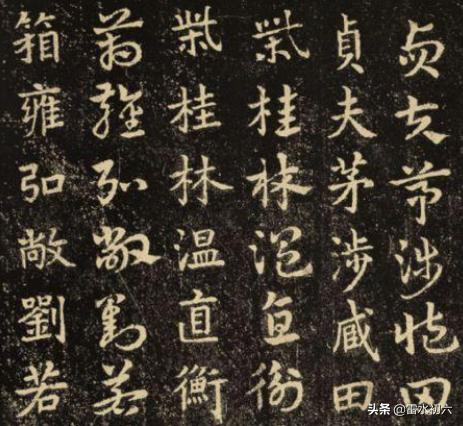 貞夫茅涉臧田
貞夫茅涉臧田
柴桂林温直衡
柴桂林温直衡
箱雍弘敞劉若
箱雍弘敞劉若
头条 @雷水初六